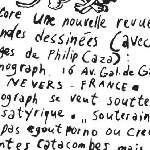 core Une nouvelle revue
ndes dessinées (avec
ges de Philip Caza):
nograph. 16 Av. Gal. de G
NEVERS - FRANCE.
ograph se veut soutte
satyrique.. "souterain
pas egout porno ou creu
ntes catacombes mais